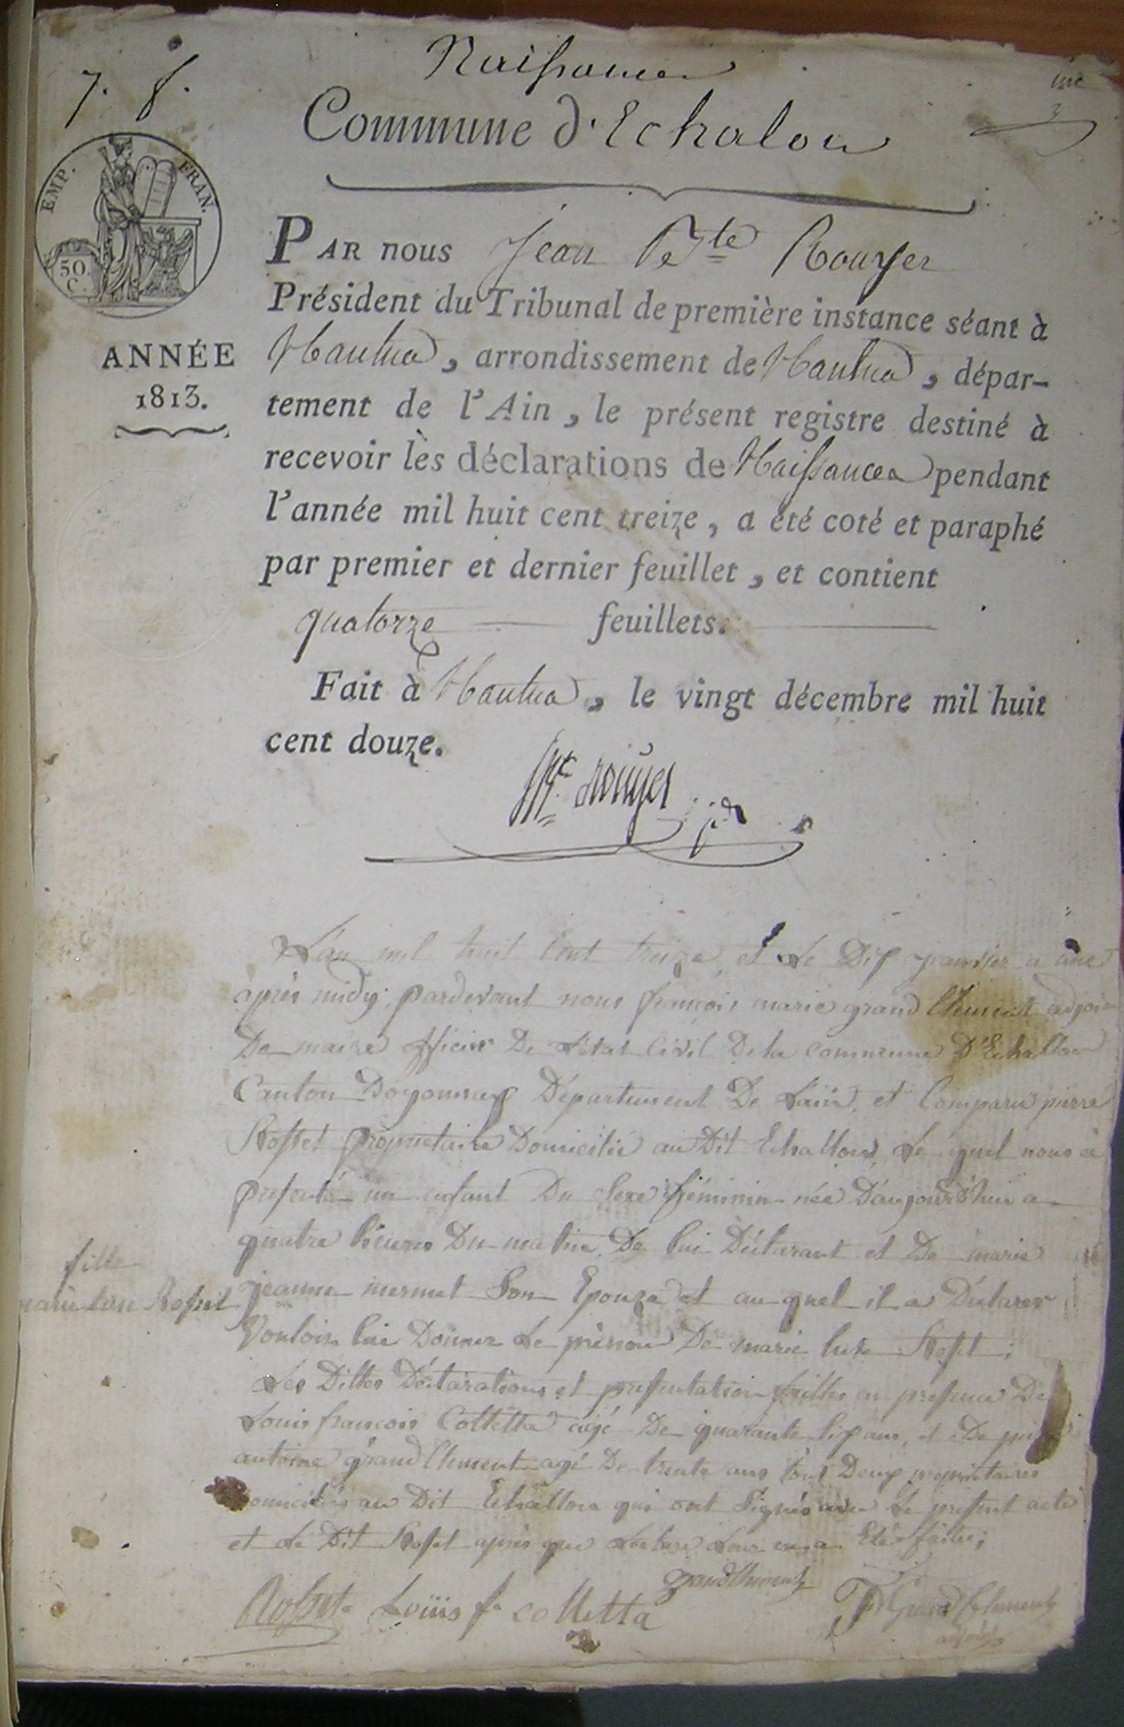 7. 8.
Naissances
une
3
Commune d'Echalon
EMP. FRAN.
50. C.
ANNÉE
1813.
PAR nous Jean Bte Rouyer
Président du Tribunal de première instance séant à
Nantua, arrondissement de Nantua, dépar-
tement de l'Ain, le présent registre destiné à
recevoir lès déclarations de Naissances pendant
l'année mil huit cent treize, a été coté et paraphé
par premier et dernier feuillet, et contient
quatorze feuillets.
Fait à Nantua, le vingt décembre mil huit
cent douze.
Bte Rouyer
L'an mil huit cent treize et le Dix janvier a une
après midy pardevant nous françois marie grand Clement adjoint
De maire officier De L'état Civil De la commune D'Echallon
Canton Doyonnax Département De Lain, et Comparu pierre
Rosset propriétaire Domicilié au Dit Echallon, Le quel nous a
presenté un enfant Du sexe féminin née D'aujourd'hui a
quatre heures Du matin De lui Déclarant et De marie
jeanne mermet Son Epouze et au quel il a Déclarer
Vouloir lui Donner Le prénom De marie Rosset;
fille
marie Rosset
Les Dittes Déclarations et presentation faittes en presence De
Louis françois Colletta agé De quarante six ans, et De
antoine grand Clement agé De trente ans tous Deux propriétaires
Domiciliés au Dit Echallon qui ont Signés avec Le present acte
et Le Dit Rosset après que Lecture Leur en a Eté faitte;
Rosset Louis f. colletta grandclement F Grand Clement
adjoint